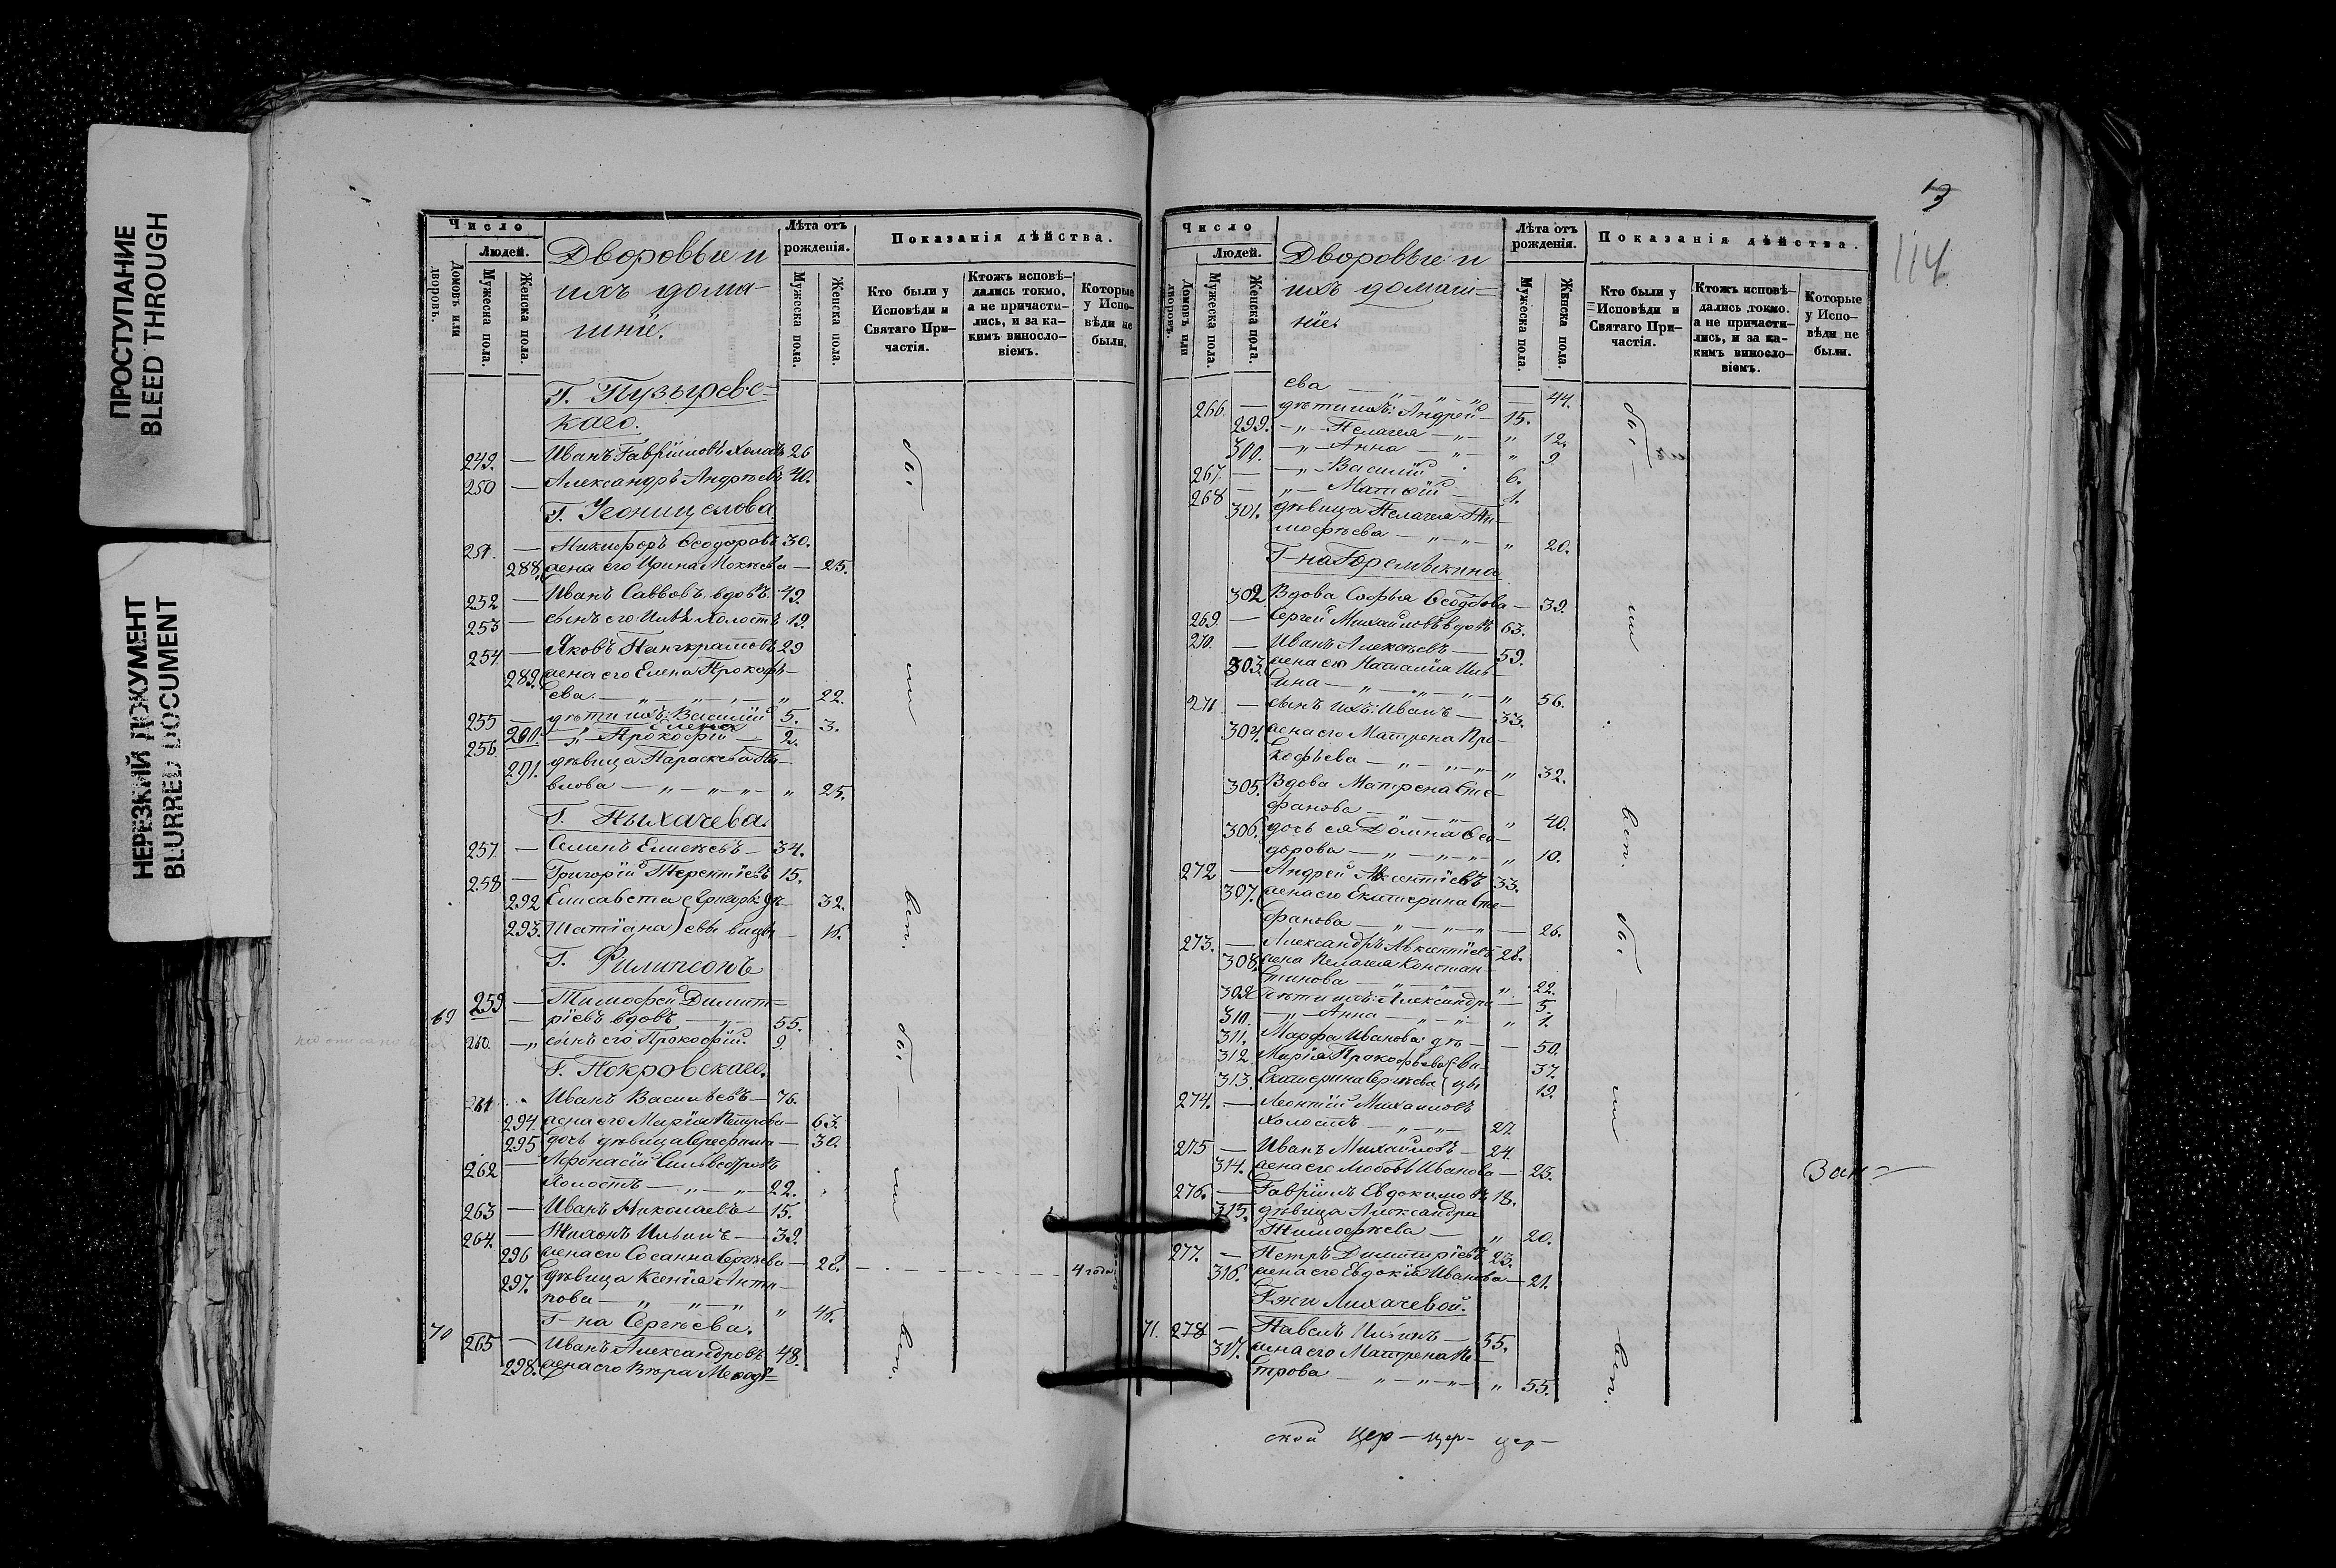 ПРОСТУПАНИЕ
BLEED THROUGH
НЕРЕЗКИЙ ДОКУМЕНТ
BLURRED DOCUMENT
Число
Людей.
Домовъ или дворовъ.
Мужеска пола.
Женска пола.
Дворовые и
ихъ дома-
шніе.
Лѣта отъ
рожденія.
Мужеска пола.
Женска пола.
Показанія дѣйства.
Кто были у
Исповѣди и
Святаго При-
частія.
Ктожъ исповѣ-
дались токмо,
а не причасти-
лись, и за ка-
кимъ винослo-
віемъ.
Которые
у Испо-
вѣди не
были.
Г. Пузыревс-
каго.
249. — Иванъ Гавріиловъ холостъ 26
250 — Александръ Андреевъ 40.
251. — Никифоръ Ѳеодоровъ 30.
288. жена его Ирина — 25.
252 — Иванъ Саввовъ вдовъ 49.
253 — сынъ его Илья холостъ 19.
254 — Яковъ Панкратовъ 29
289. жена его Елена Прокофь-
ева — „ — „ — „ 22.
255 — дѣти ихъ: Василій 5.
290. Елена 3.
256. — „ — Прокофій — 2.
291. дѣвица Параскева Па-
влова — „ — „ — „ — „ 25.
Г. Пыхачева.
257. — Семенъ Елисѣевъ — 34.
258 — Григорій Терентіевъ 15.
292 Елисавета Григорь- дѣ- 32.
293. Татіана евы вицы —
Г. Филипсонъ
259 — Тимофей Димит-
69 — ріевъ вдовъ — „ — 55.
260. — „ сынъ его Прокофій. 9.
Г. Покровскаго.
261 Иванъ Васильевъ — 76.
294. жена его Марія Петрова — 63.
295 дочь дѣвица Серафима — 30.
262 — Афонасій Сильвестровъ
Холостъ — „ — „ — 22.
263 — Иванъ Николаевъ — 15.
264. — Тихонъ Ильинъ — 39.
296 жена его Сосанна Сергѣева — 28. 4 года
297. дѣвица Ксенія Анти-
пова — „ „ — „ „ 46.
Г-на Сергѣева.
70 265 — Иванъ Александровъ 48.
298. жена его Вѣра Меѳодь-
бы — ли исп. бы — ли исп.
114.
Число
Людей.
Домовъ или дворовъ.
Мужеска пола.
Женска пола.
Дворовые и
ихъ домаш-
ніе.
Лѣта отъ
рожденія.
Мужеска пола.
Женска пола.
Показанія дѣйства.
Кто были у
Исповѣди и
Святаго При-
частія.
Ктожъ исповѣ-
дались токмо.
а не причасти-
лись, и за ка-
кимъ винослo-
віемъ.
Которые
у Испо-
вѣди не
были.
ева — „ — „ — „ — 44.
266. — дѣти ихъ: Андрей — 15.
299. — „ — Пелагея — „ — „ 12.
300. — „ — Анна — „ — „ 9
267. — — „ — Василій — 6.
268 — „ — Матѳій — 1.
301. дѣвица Пелагея Ти-
мофѣева — „ — „ — „ 20.
Г-на Горемыкина
302 Вдова Софья — 39.
269 — Сергей Михайловъ вдовъ 63.
270. — Иванъ Алексѣевъ — 59.
303. жена его Наталія Иль-
ина — „ — „ — „ — „ 56.
271 — сынъ ихъ: Иванъ — 33.
304. жена его Матрена Про-
кофьева — „ — „ — „ — „ 32.
305. Вдова Матрена Сте-
фанова — „ — „ — „ 40.
306. дочь ея Домна Ѳео-
дорова — „ — „ — „ — „ 10.
272 — Андрей Аксентіевъ 33.
307. жена его Екатерина Сте-
фанова — „ — „ — „ — 26.
273. — Александръ Авксентіевъ 28.
308. жена Пелагея Констан-
тинова — „ — „ — „ 22.
309 дѣти ихъ: Александра — 5.
310. — „ — Анна — „ — „ — „ 1.
311. Марфа Иванова дѣ- — 50.
312 Марія Прокофьева ви- 37.
313. Екатерина Сергѣева цы 19.
274. — Леонтій Михаиловъ
холостъ — „ — „ — 27.
275 — Иванъ Михайловъ — 24.
314. жена его Любовь Иванова — 23.
276. — Гавріилъ Евдокимовъ 18.
315. дѣвица Александра
Тимофѣева — „ 20.
277. — Петръ Димитріевъ 23.
316. жена его Евдокія Иванова — 21.
Г-жи Лихачевой.
71. 278 — Павелъ — 55.
317. жена его Матрена Пе-
трова — „ — „ — „ — „ 55.
бы — ли исп. бы — ли исп.
ской цер — цер — цер —